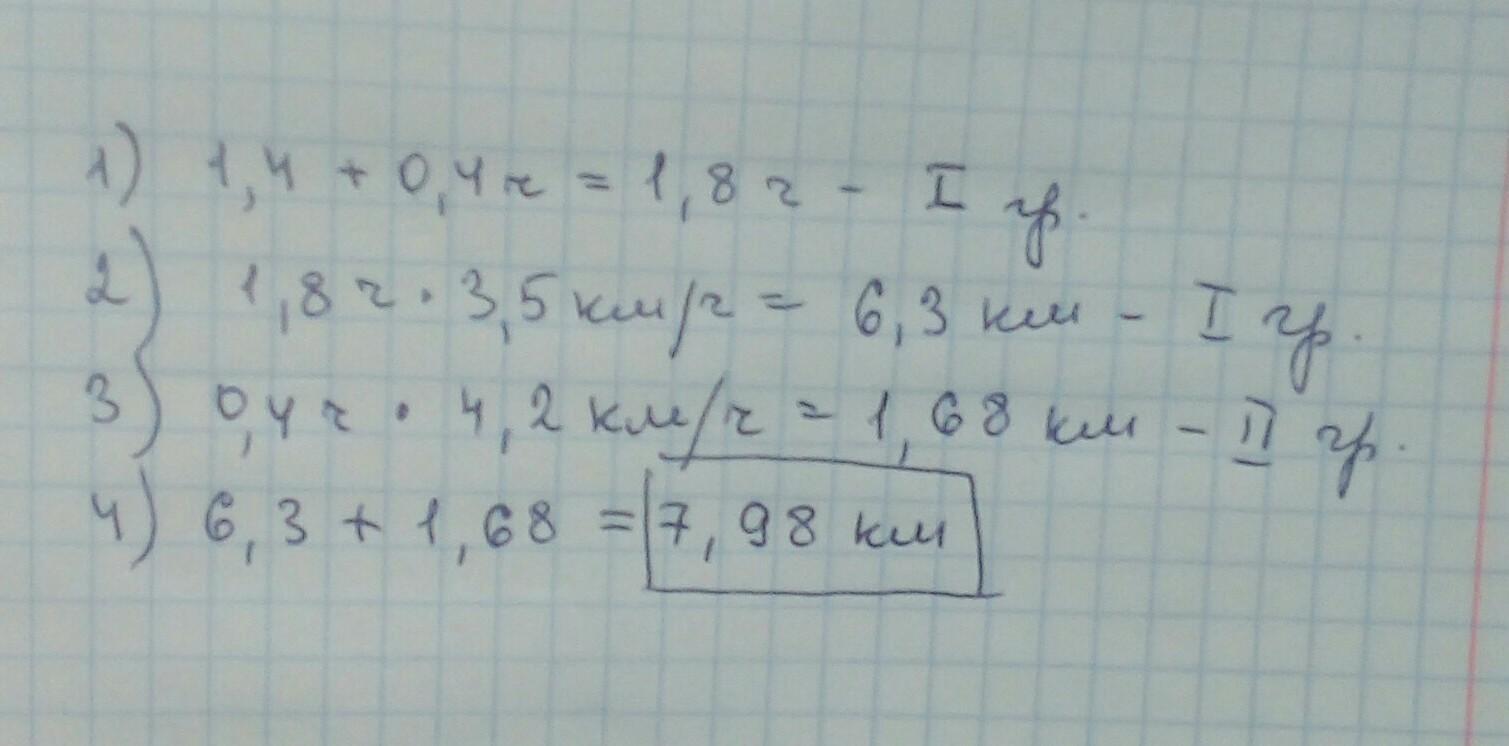 1) 1,4 + 0,4 ч = 1,8 ч - I гр.
2) 1,8 ч · 3,5 км/ч = 6,3 км - I гр.
3) 0,4 ч · 4,2 км/ч = 1,68 км - II гр.
4) 6,3 + 1,68 = 7,98 км